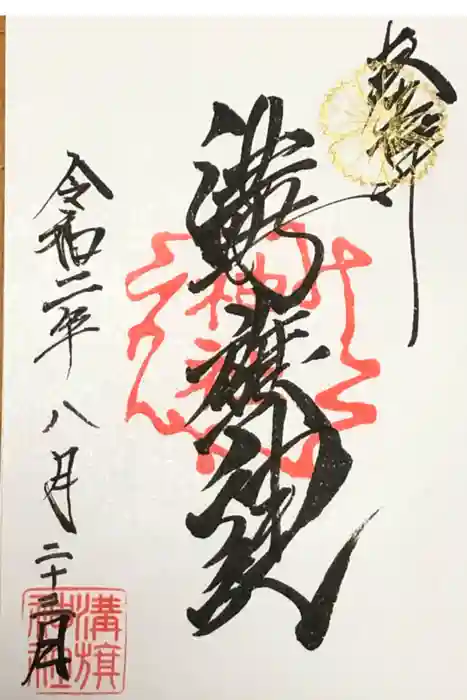 奉拝
溝旗神社
令和二年八月二十三日
溝旗
神社